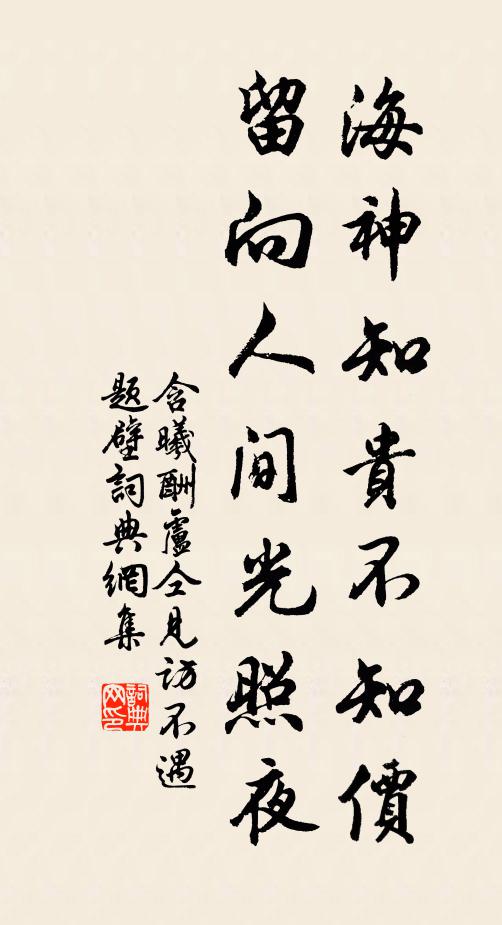 海神知貴不知價
留向人間光照夜
含曦酬盧仝見訪不遇
題壁詞典網集
詞典
网印